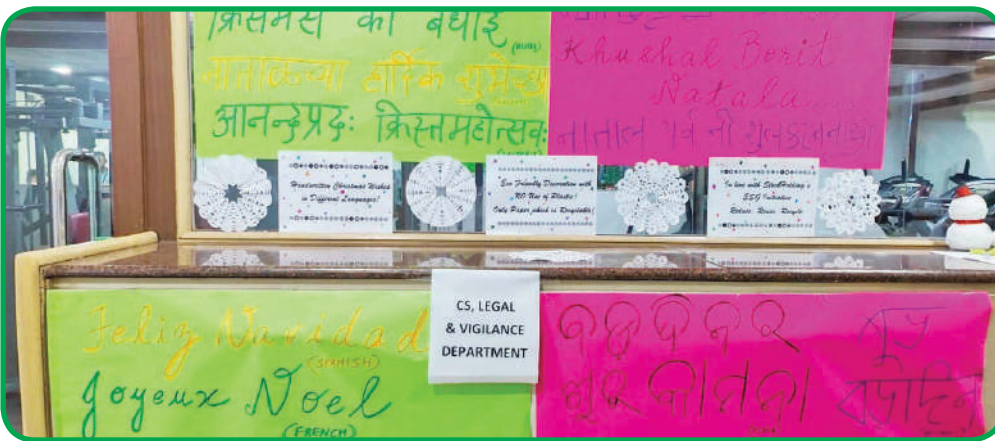 क्रिसमस की बधाई
(HINDI)
नाताळच्या हार्दिक शुभेच्छा
आनन्दप्रदः क्रिस्तमहोत्सवः
Khushal Borit
Natala......
નાતાલ પર્વ ની શુભકામનાઓ
Handwritten Christmas Wishes
in Different Languages!
Eco Friendly Decoration with
NO Use of Plastic!
Only Paper which is Recyclable!
In line with StockHolding's
ESG Initiative
Reduce Reuse Recycle
CS, LEGAL
& VIGILANCE
DEPARTMENT
Feliz Navidad
(SPANISH)
Joyeux Noel
(FRENCH)
ବଡ଼ଦିନର
ଶୁଭ କାମନା